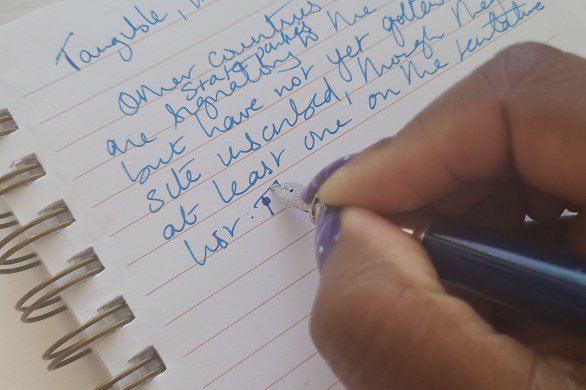 Tangible,
Other countries
State parties
are signatory to the
but have not yet gotten
site inscribed, though they
at least one on the tentative
list. T